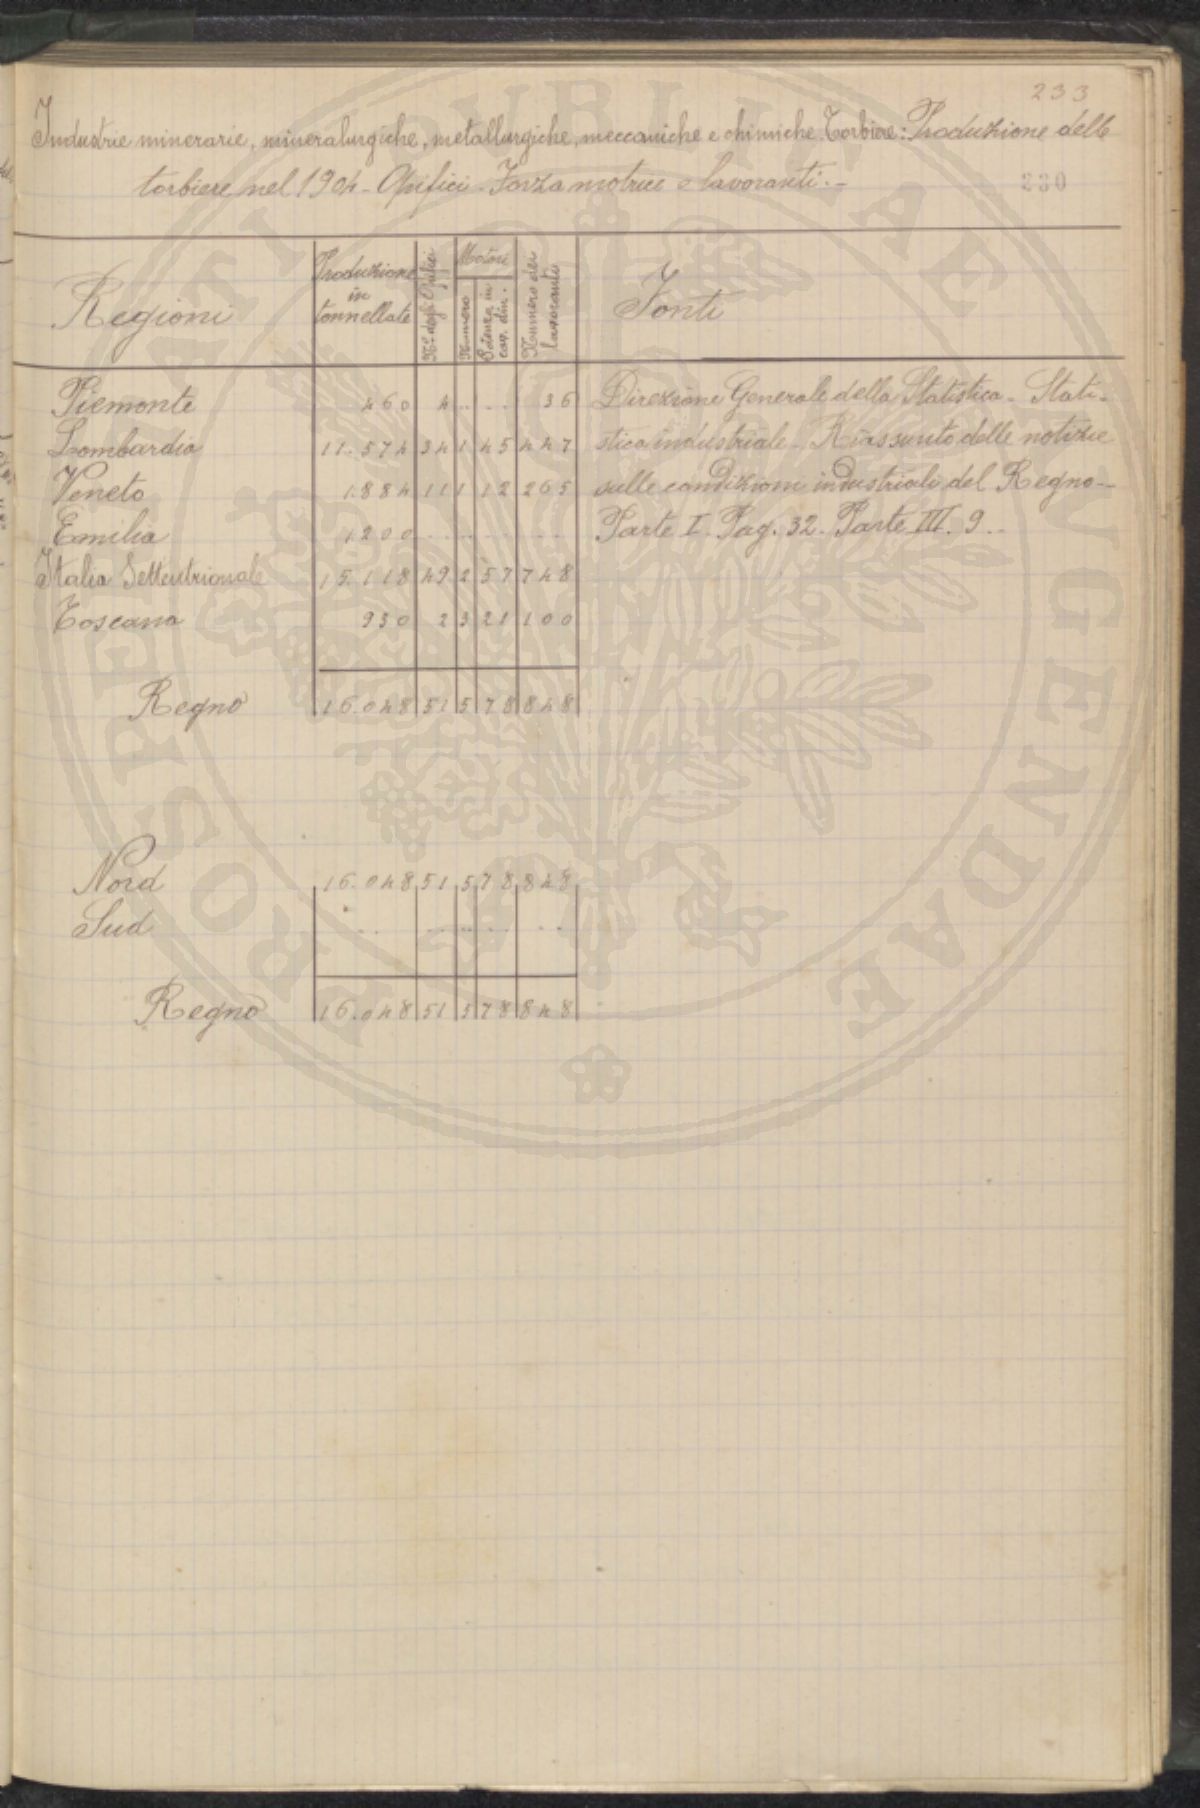 233
Industrie minerarie, mineralurgiche, metallurgiche, meccaniche e chimiche. Torbiere: Produzione delle
torbiere nel 1904 - Opifici - Forza motrice e lavoranti. -
230
Regioni | Produzione in tonnellate | N.° degli Opifici | Motori: Numero | Potenza in cav. din. | Numero dei lavoranti | Fonti
Piemonte 460 4 . . . . 36 Direzione Generale della Statistica - Stati-
Lombardia 11.574 34 1 45 447 stica industriale - Riassunto delle notizie
Veneto 1.884 11 1 12 265 sulle condizioni industriali del Regno -
Emilia 1.200 . . . . . . . . Parte I. Pag. 32 - Parte III. 9 . .
Italia Settentrionale 15.118 49 2 57 748
Toscana 930 2 3 21 100
Regno 16.048 51 5 78 848
Nord 16.048 51 5 78 848
Sud . . . . . . . . . .
Regno 16.048 51 5 78 848
PUBLICAE
AUGENDAE
PROSPERITATI